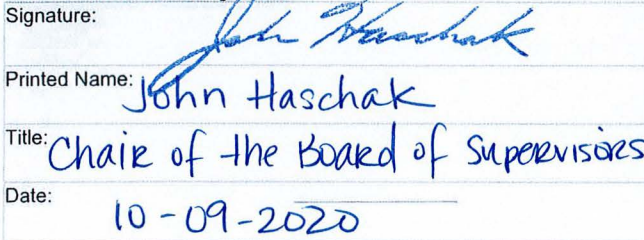 Signature: John Haschak
Printed Name: John Haschak
Title: Chair of the Board of Supervisors
Date: 10-09-2020